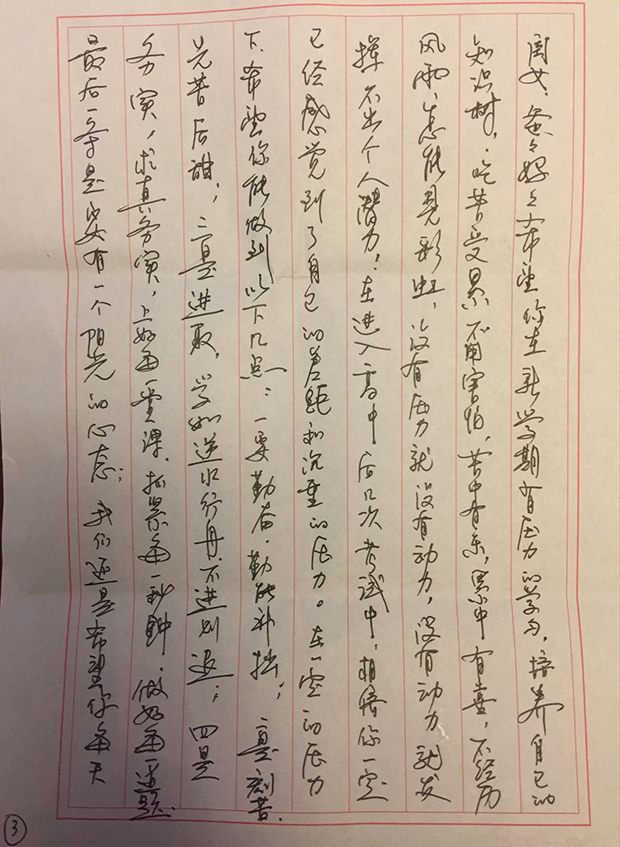 闺女：爸爸妈妈希望你在新学期有压力的学习，培养自己的
知识树，吃苦受累不用害怕，苦中有乐，累中有喜，不经历
风雨，怎能见彩虹，没有压力就没有动力，没有动力就发
挥不出个人潜力！在进入高中后几次考试中，相信你一定
已经感觉到了自己的差距和沉重的压力。在一定的压力
下，希望你能做到以下几点：一要勤奋，勤能补拙；二要刻苦，
先苦后甜；三是进取，学如逆水行舟，不进则退；四是
务实，求真务实，上好每一堂课，抓紧每一秒钟，做好每一道题，
最后一条是要有一个阳光的心态；我们还是希望你每天
3